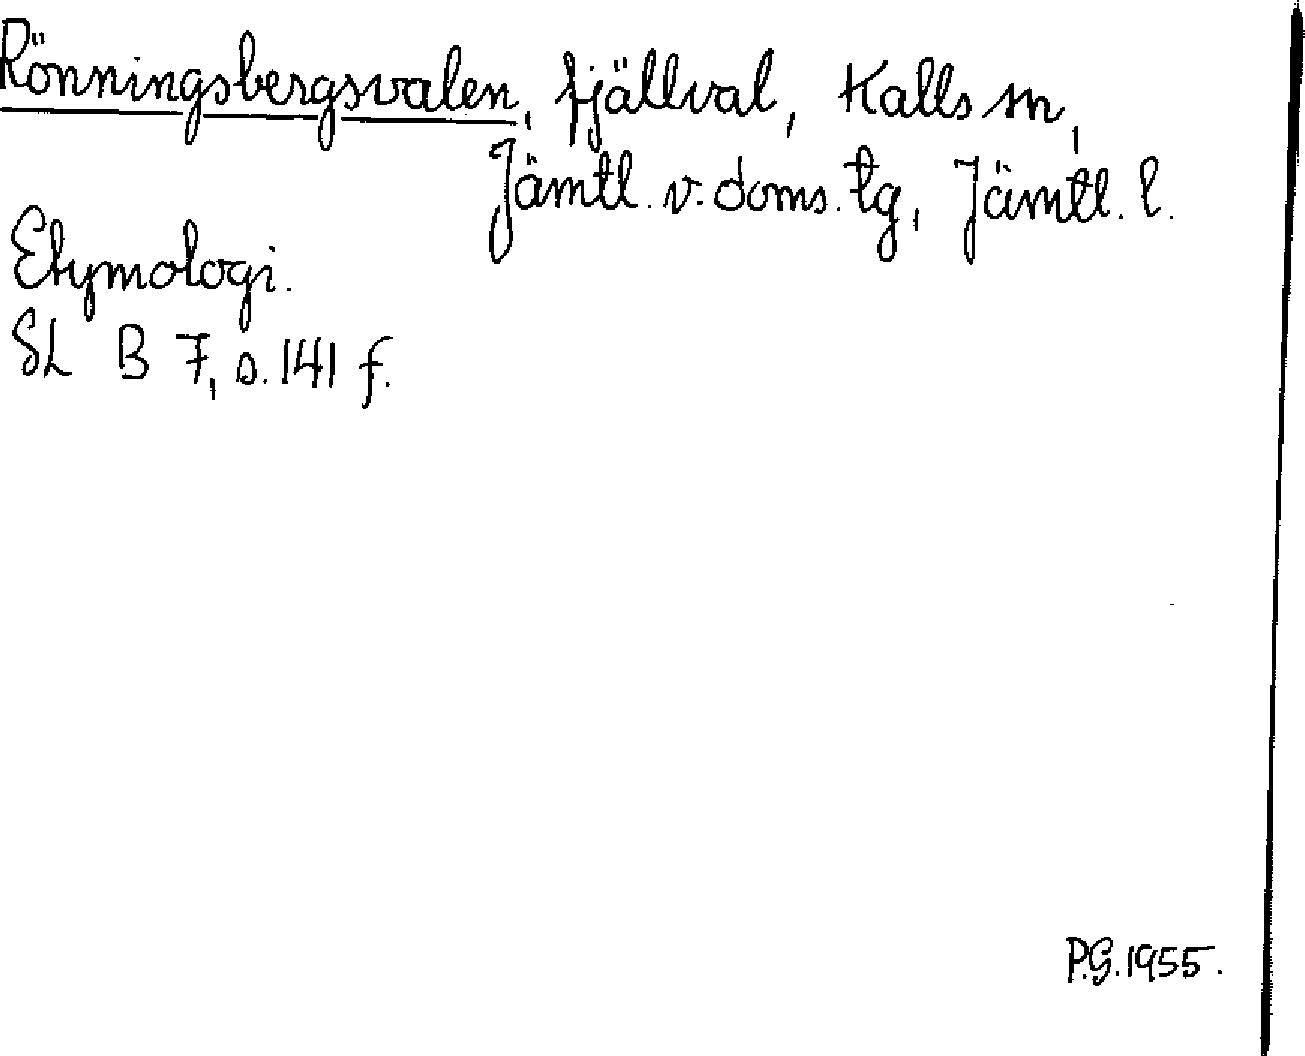 Rönningsbergsvalen, fjällval, Kalls sn,
Jämtl. v. doms. tg, Jämtl. l.
Etymologi.
SL B 7, s. 141 f.
P.G. 1955.